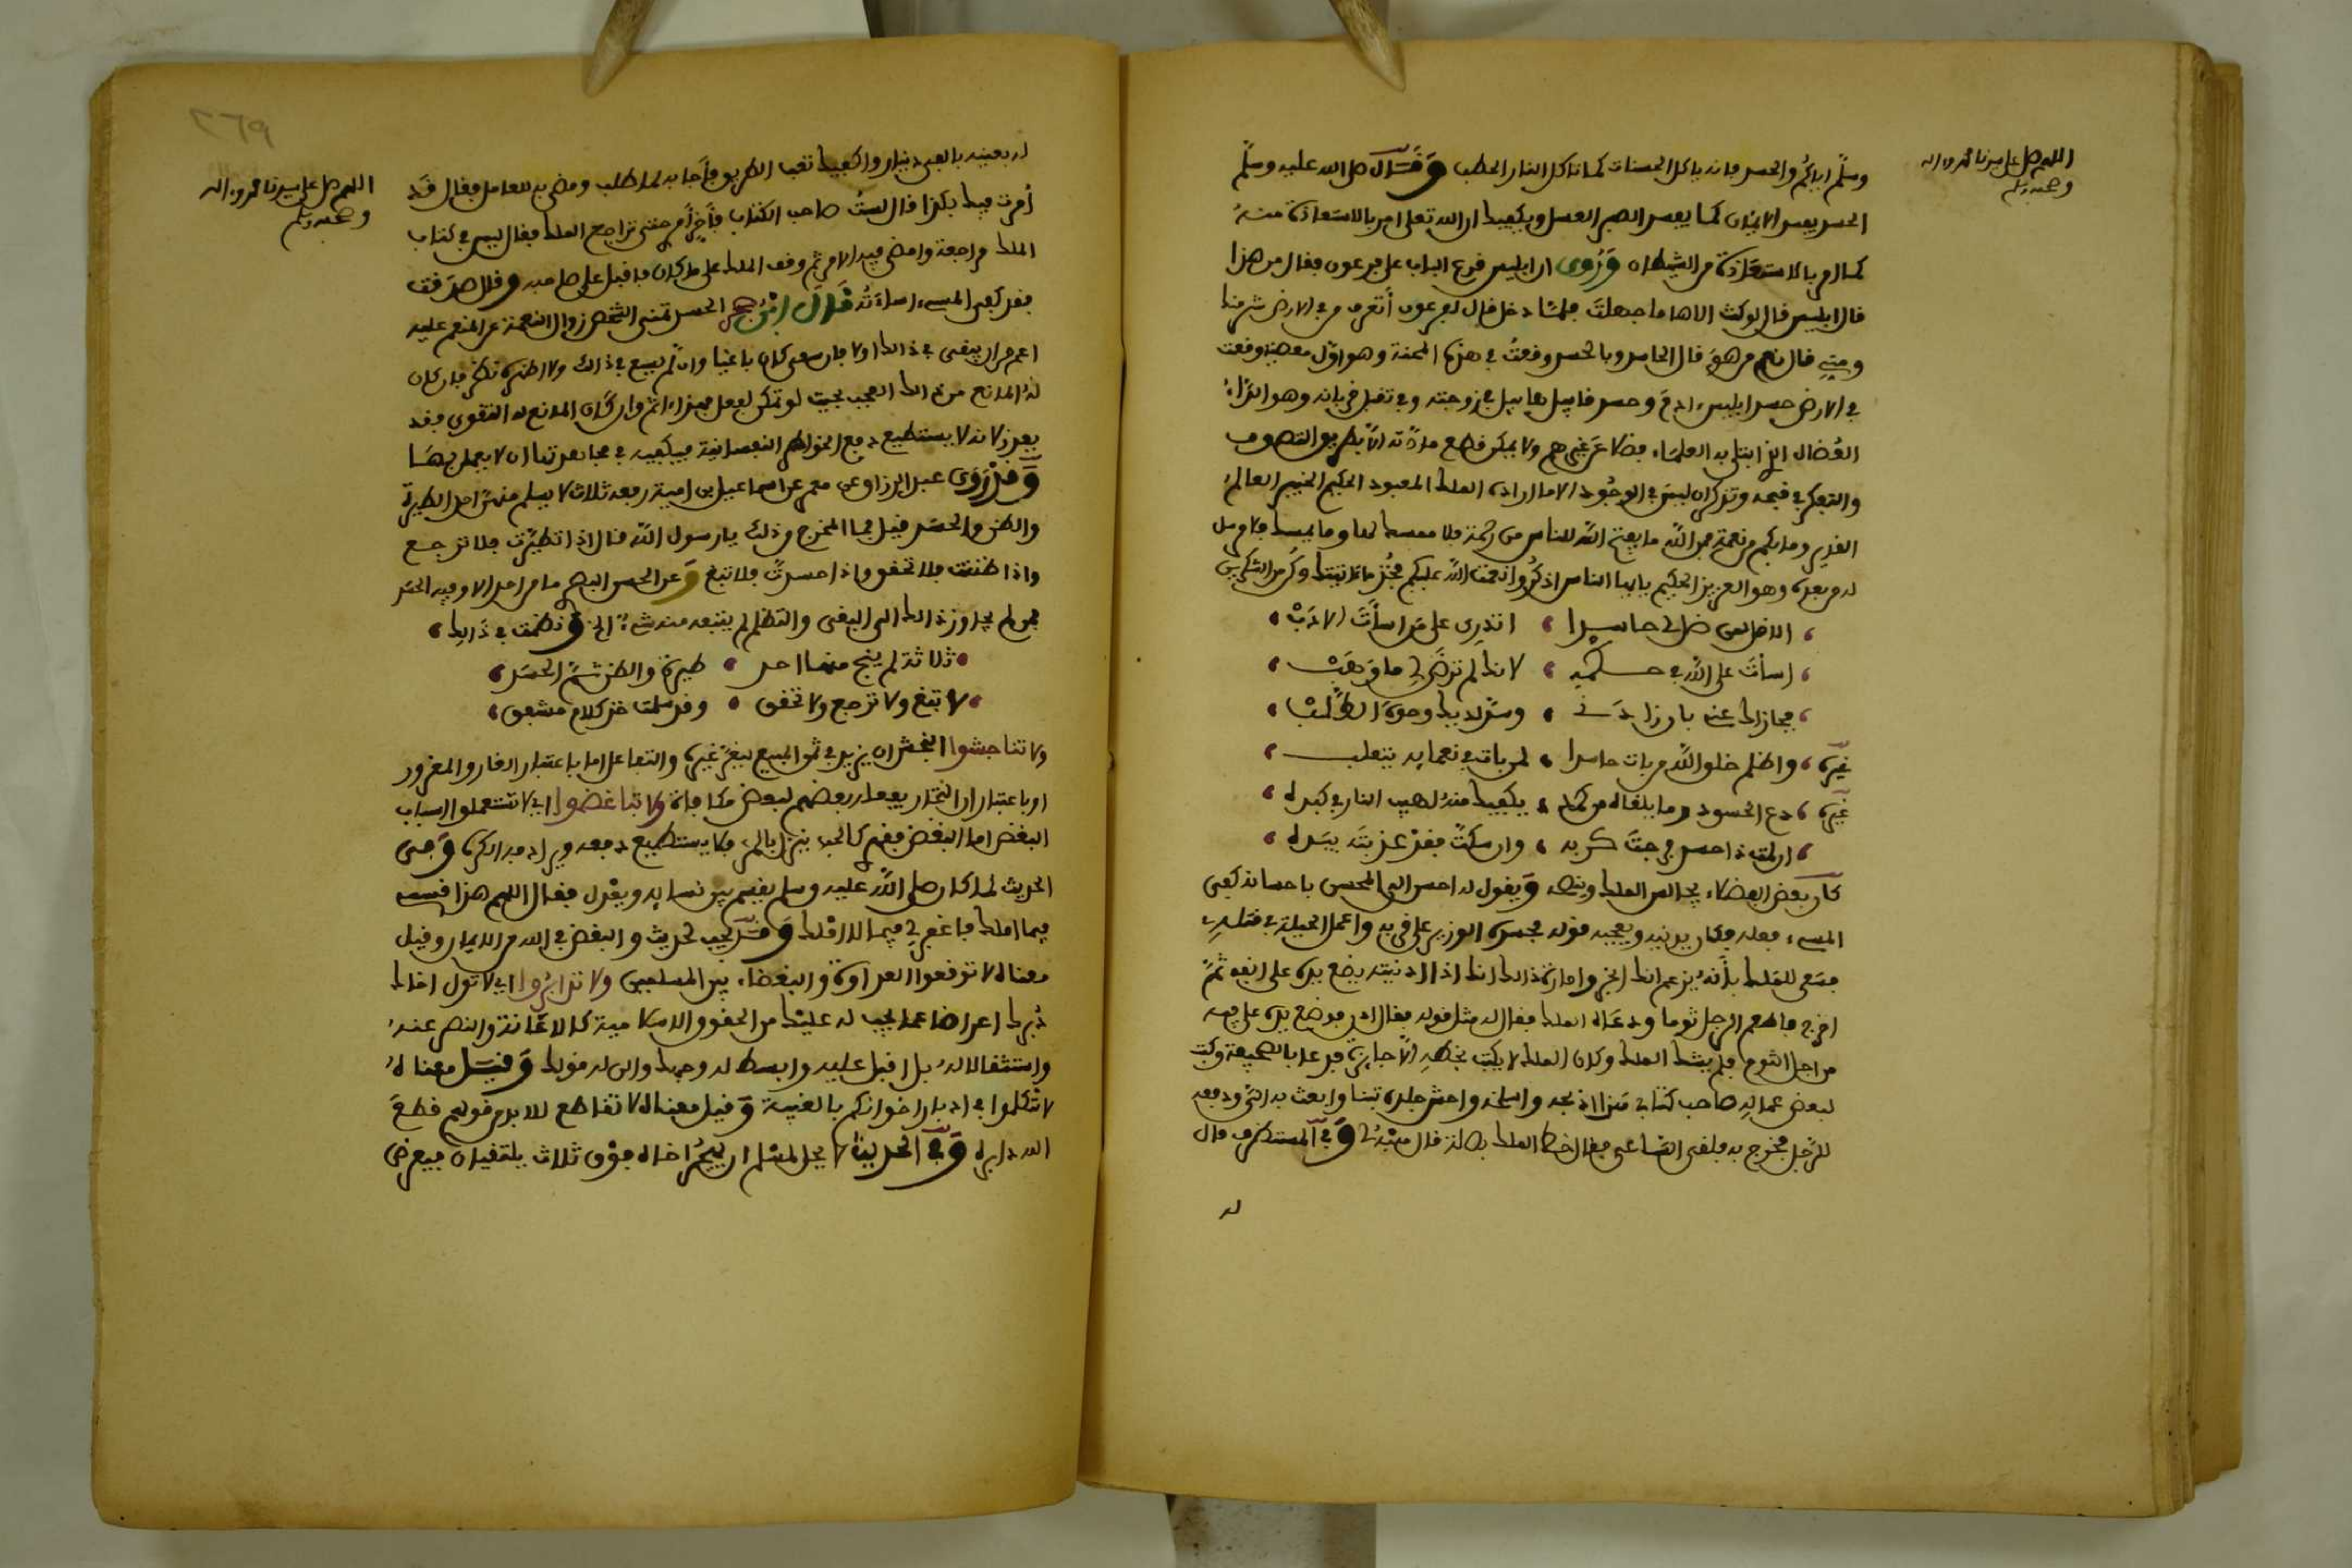 اللهم صل على سيدنا محمد وءاله
وصحبه وسلم
وسلم اياكم والحسد فانه ياكل الحسنات كما تاكل النار الحطب وقال صلى الله عليه وسلم
الحسد يفسد الايمان كما يفسد الصبر العسل ويكفيك ان الله تعلى امر بالاستعاذة منه
كما امر بالاستعاذة من الشيطان وروى ان ابليس قرع الباب على فرعون فقال من هذا
قال ابليس قال لو كنت الاها ما جهلت فلما دخل قال له فرعون أتعرف في الارض شر منا
ومني قال نعم من هو قال الحاسد وبالحسد وقعت في هذه المحنة وهو اول معصية وقعت
في الارض حسد ابليس ءادم وحسد قابيل هابيل في زوجته وفي تقبل قربانه وهو الداء
العضال الذي ابتلى به العلماء فضلا عن غيرهم ولا يمكن قطع مادته الا بطريق التصوف
والتفكر في قبحه وتذكر ان ليس في الوجود الا ما اراده الملك المعبود الحكيم الخبير العالم
القدير وما بكم من نعمة فمن الله ما يفتح الله للناس من رحمة فلا ممسك لها وما يمسك فلا مرسل
له من بعده وهو العزيز الحكيم يا ايها الناس اذكروا نعمت الله عليكم فخذ ما ءاتيتك وكن من الشاكرين
الا قل لمن ظل لي حاسدا اتدري على من اسأت الادب
اسأت على الله في حكمه لانك لم ترض لي ما وهب
فجازاك عنه بان زادني وسد لديك وجوه الطلب
غيره واظلم خلق الله من بات حاسدا لمن بات في نعمايه يتقلب
غيره دع الحسود وما يلقاه من كمده يكفيك منه لهيب النار في كبده
ان لمت ذا حسد فرجت كربه وان سكت فقد عذبته بيده
كان بعض الفضلاء يجالس الملك وينصحه ويقول له احسن الى المحسن باحسانه كفى
المسيء فعله فكان يدنيه ويعجبه قوله فحسده الوزير على قربه واعمل الحيلة في قتله
فسعى للملك بانه يزعم انك ابخر وامارة ذالك انك اذا ادنيته يضع يده على انفه ثم
اخرج فاطعم الرجل ثوما ودعاه الملك فقال له مثل قوله فقال ادن فوضع يده على فيه
من اجل الثوم فلم يشك الملك وكان الملك لا يكتب بخطه الا جايزة فدعا بالصحيفة وكتب
لبعض عماله صاحب كتابي هذا اذبحه واسلخه واحش جلده تبنا وابعث به الي ودفعه
للرجل فخرج به فلقي الساعي فقال خط الملك بصلة قال هبه لي وفي المستطرف قال
له
٢٦٩
اللهم صل على سيدنا محمد وءاله
وصحبه وسلم
له بعنيه بالفي دينار واكفيك تعب الطريق فاجابه لما طلب ومضى به للعامل فقال قد
أمرت فيك بكذا قال لست صاحب الكتاب فأخر أمري حتى تراجع الملك فقال ليس في كتاب
الملك مراجعة وامضى فيه الامر ثم وقف الملك على ما كان فاقبل على صاحبه وقال صدقت
فقد كفى المسيء اساءته قال ابن حجر الحسد تمني الشخص زوال النعمة عن المنعم عليه
اعم من ان يسعى في ذالك اولا فان سعى كان باغيا وان لم يسع في ذالك ولا اظهره نظر فان كان
له المانع من ذالك العجز بحيث لو تمكن لفعل فهذا ءاثم وان كان المانع له التقوى فقد
يعذر لانه لا يستطيع دفع الخواطر النفسانية فيكفيه في مجاهدتها ان لا يعمل بها
وقد روى عبد الرزاق عن معمر عن اسماعيل بن امية رفعه ثلاث لا يسلم منهن احد الطيرة
والظن والحسد قيل فما المخرج من ذلك يا رسول الله قال اذا تطيرت فلا ترجع
واذا ظننت فلا تحقق واذا حسدت فلا تبغ وعن الحسن البصري ما من احد الا وفيه الحسد
فمن لم يجاوز ذالك الى البغي والتظلم لم يتبعه منه شيء الخ ونظمت في ذالك
ثلاثة لم ينج منها احد طيرة والظن ثم الحسد
لا تبغ ولا ترجع ولا تحقق وقد سلمت خذ كلام مشفق
ولا تناجشوا النجش ان يزيد في ثمن المبيع ليغر غيره والتفاعل اما باعتبار الغار والمغرور
او باعتبار ان التجار يفعله بعضهم لبعض مكافاة ولا تباغضوا اي لا تستعملوا اسباب
البغض اما البغض فقهري كالحب ينزل بالمرء فلا يستطيع دفعه ويراد فيه الكره وفي
الحديث لما كان صلى الله عليه وسلم يقسم بين نسايه ويعدل فقال اللهم هذا قسمي
فيما املك فاغفر لي فيما لا املك وقد يجب لحديث والبغض في الله من الايمان وقيل
معناه لا توقعوا العداوة والبغضاء بين المسلمين ولا تدابروا اي لا تول اخاك
دبرك اعراضا عما يجب له عليك من الحقوق الاسلامية كالاعانة والنصر عنده
واستثقالا له بل اقبل عليه وابسط له وجهك والن له قولك وقيل معناه
لا تكلموا في ادبار اخوانكم بالغيبة وقيل معناه لا تقاطع للابد من قولهم قطع
الله دابره وفي الحديث لا يحل لمسلم ان يهجر اخاه فوق ثلاث يلتقيان فيعرض